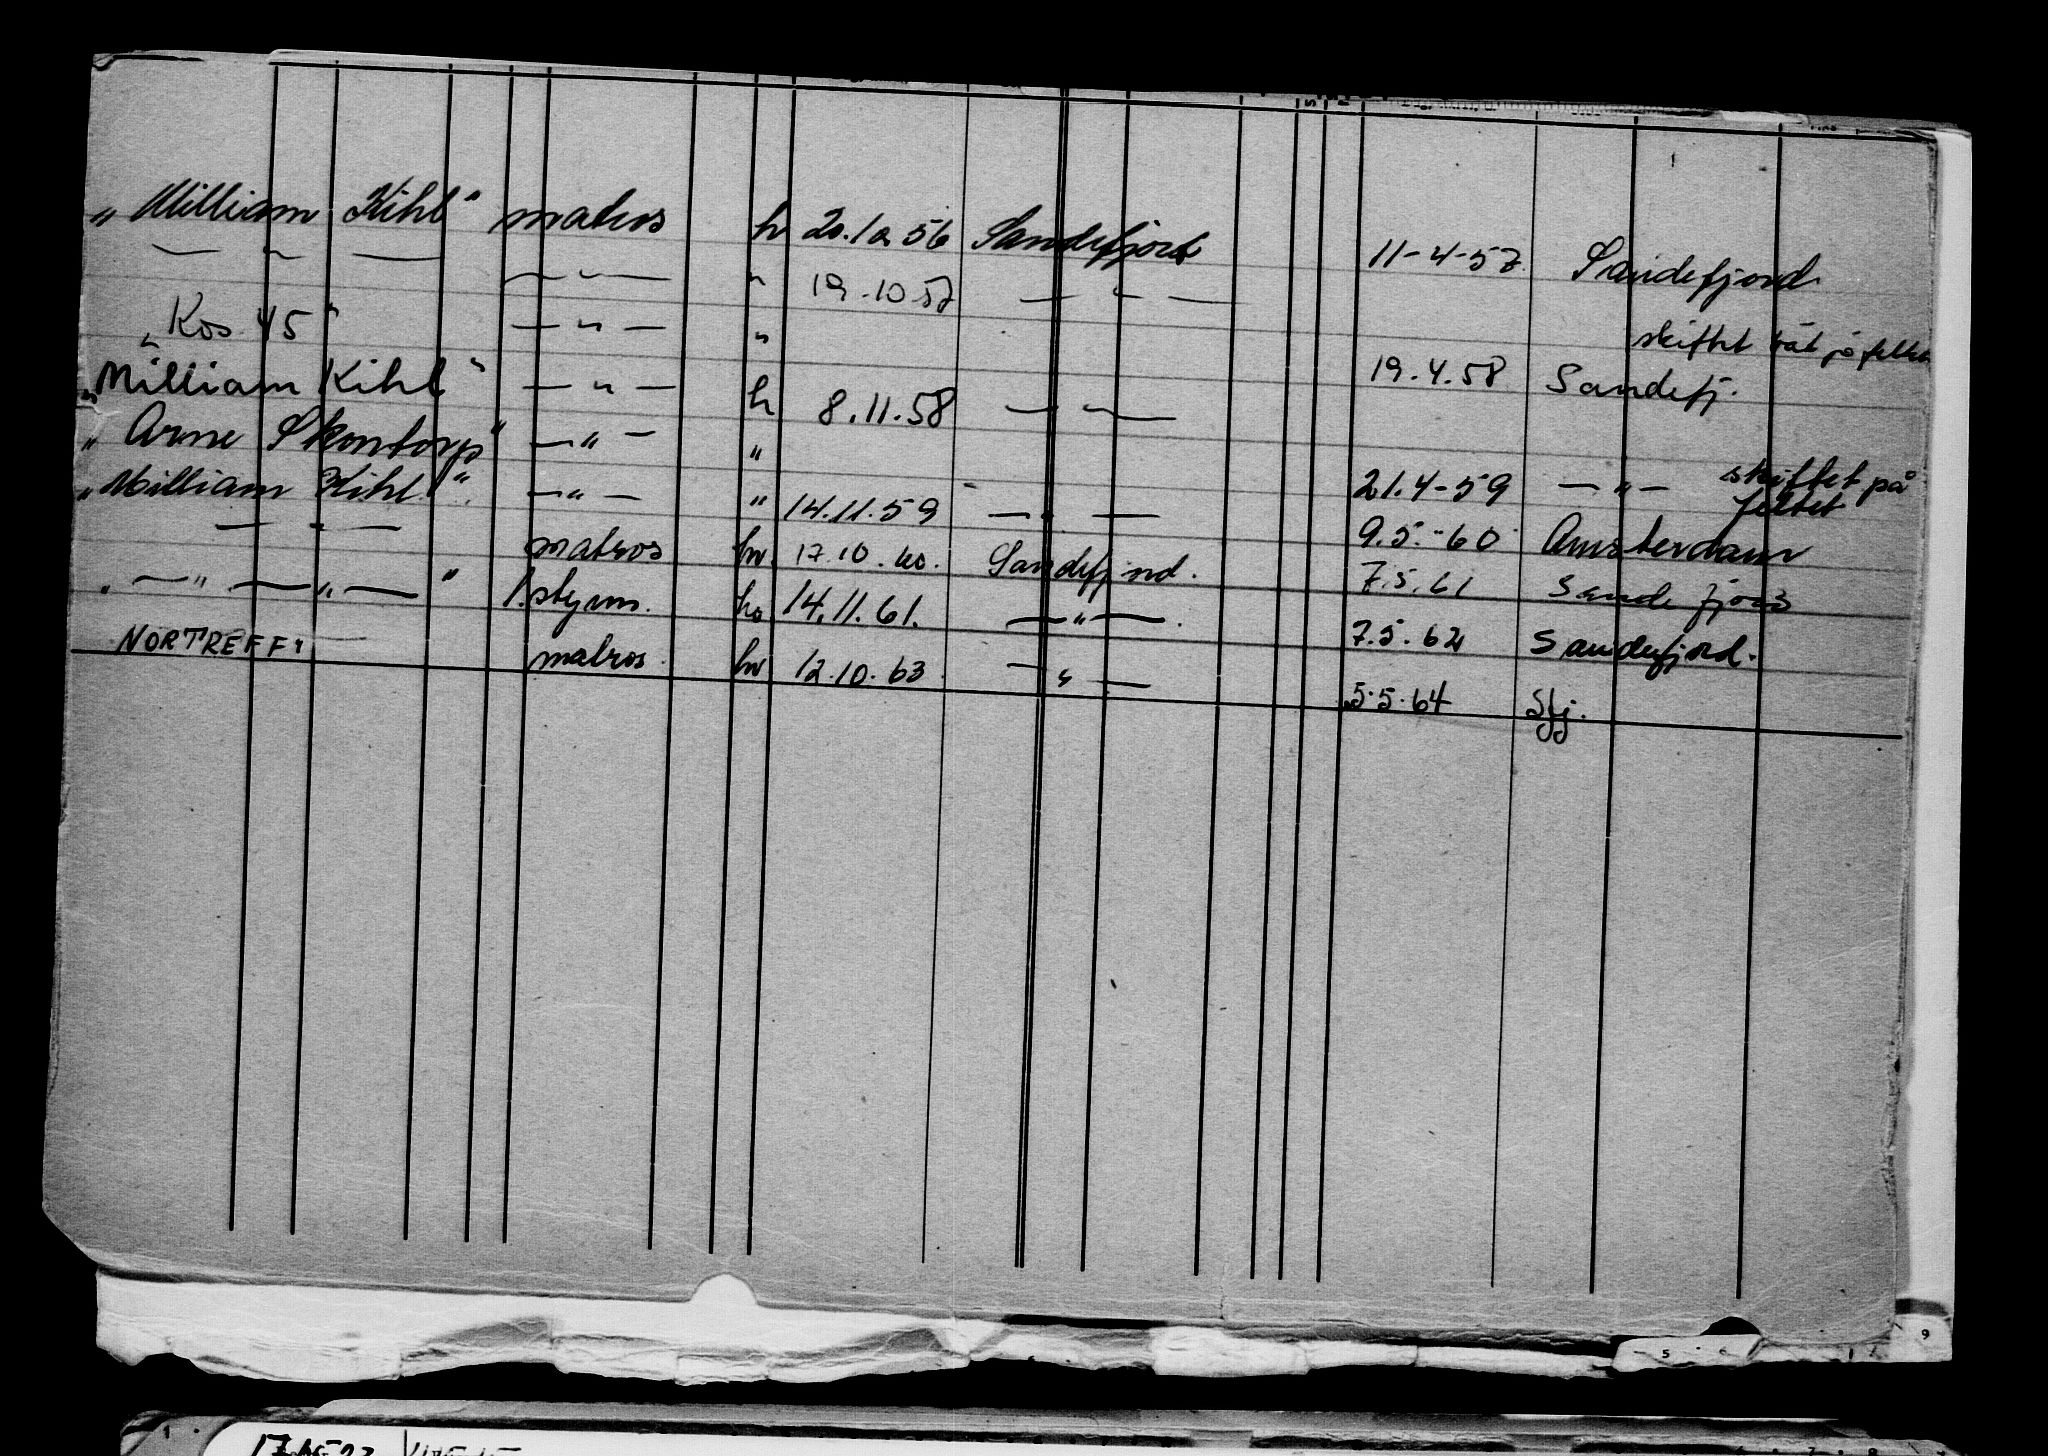 "William Kihl" matros h 20.10.56 Sandefjord 11-4-57 Sandefjord
— " — — " — " 19.10.57 — " —
"Kos 45" — " — " skiftet båt på feltet
"William Kihl" — " — h 8.11.58 — " — 19.4.58 Sandefj.
"Arne Skontorp" — " — "
"William Kihl" — " — " 14.11.59 — " — 21.4-59 — " — skiftet på feltet
— " — matros hv. 17.10.60. Sandefjord. 9.5.-60 Amsterdam
" — " — " — " 1. styrm. hv 14.11.61. — " — . 7.5.61 Sandefjord
NORTREFF" matros hv 12.10.63 — " — 7.5.62 Sandefjord.
5.5.64 Sfj.